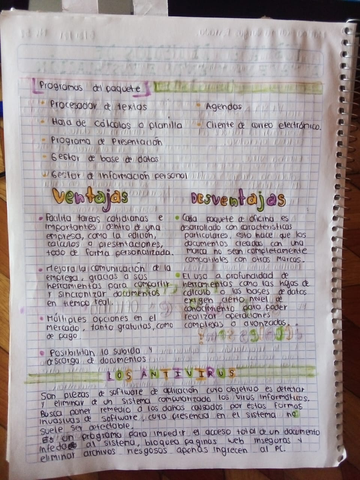 Programas del paquete
- Procesador de textos
- Agendas
- Hoja de cálculos o planilla
- Cliente de correo electrónico.
- Programa de Presentación
- Gestor de base de datos
- Gestor de información personal
Ventajas
• Facilita tareas cotidianas e
importantes dentro de una
empresa, como la edición,
cálculos o presentaciones,
todo de forma personalizada.
• Mejora la comunicación de la
empresa, gracias a sus
herramientas para compartir
y sincronizar documentos
en tiempo real.
• Múltiples opciones en el
mercado, tanto gratuitas, como
de pago.
• Posibilitan la subida y
descarga de documentos
Desventajas
• Cada paquete de oficina es
desarrollado con características
particulares, esto hace que los
documentos creados con una
marca no sean completamente
compatibles con otras marcas.
• El uso a profundidad de
herramientas como las hojas de
cálculo o las bases de datos
exigen cierto nivel de
conocimiento para poder
realizar operaciones
complejas o avanzadas.
LOS ANTIVIRUS
Son piezas de software de aplicación cuyo objetivo es detectar
y eliminar de un sistema computarizado los virus informáticos.
Busca poner remedio a los daños causados por estas formas
invasivas de software, cuya presencia en el sistema no
suele ser detectable.
Es un programa para impedir el acceso total de un documento
infectado al sistema, bloquea paginas web inseguras y
eliminar archivos riesgosos apenas ingresen al PC.